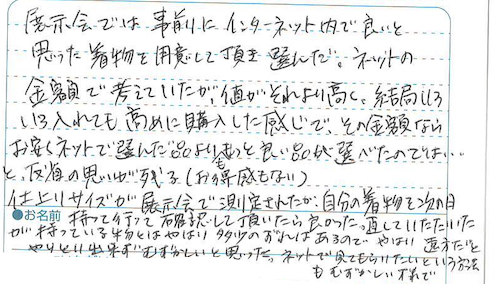 展示会では事前にインターネット内で良いと
思った着物を用意して頂き選んだ。ネットの
金額で考えていたが、値がそれより高く、結局いろ
いろ入れても高めに購入した感じで、その金額なら
お安くネットで選んだ品よりもっと良い品が選べたのでは…
と、反省の思いが残る(お得感もない)
仕上りサイズが展示会で測定されたが、自分の着物を次の日
●お名前 持って行って確認して頂いたら良かった。直していただいた
が持っている物とはやはり多少のずれはあるので やはり遠方だと
やりとり出来ずむずかしいと思った。ネットで見てもらいたいという方法
もむずかしい様で